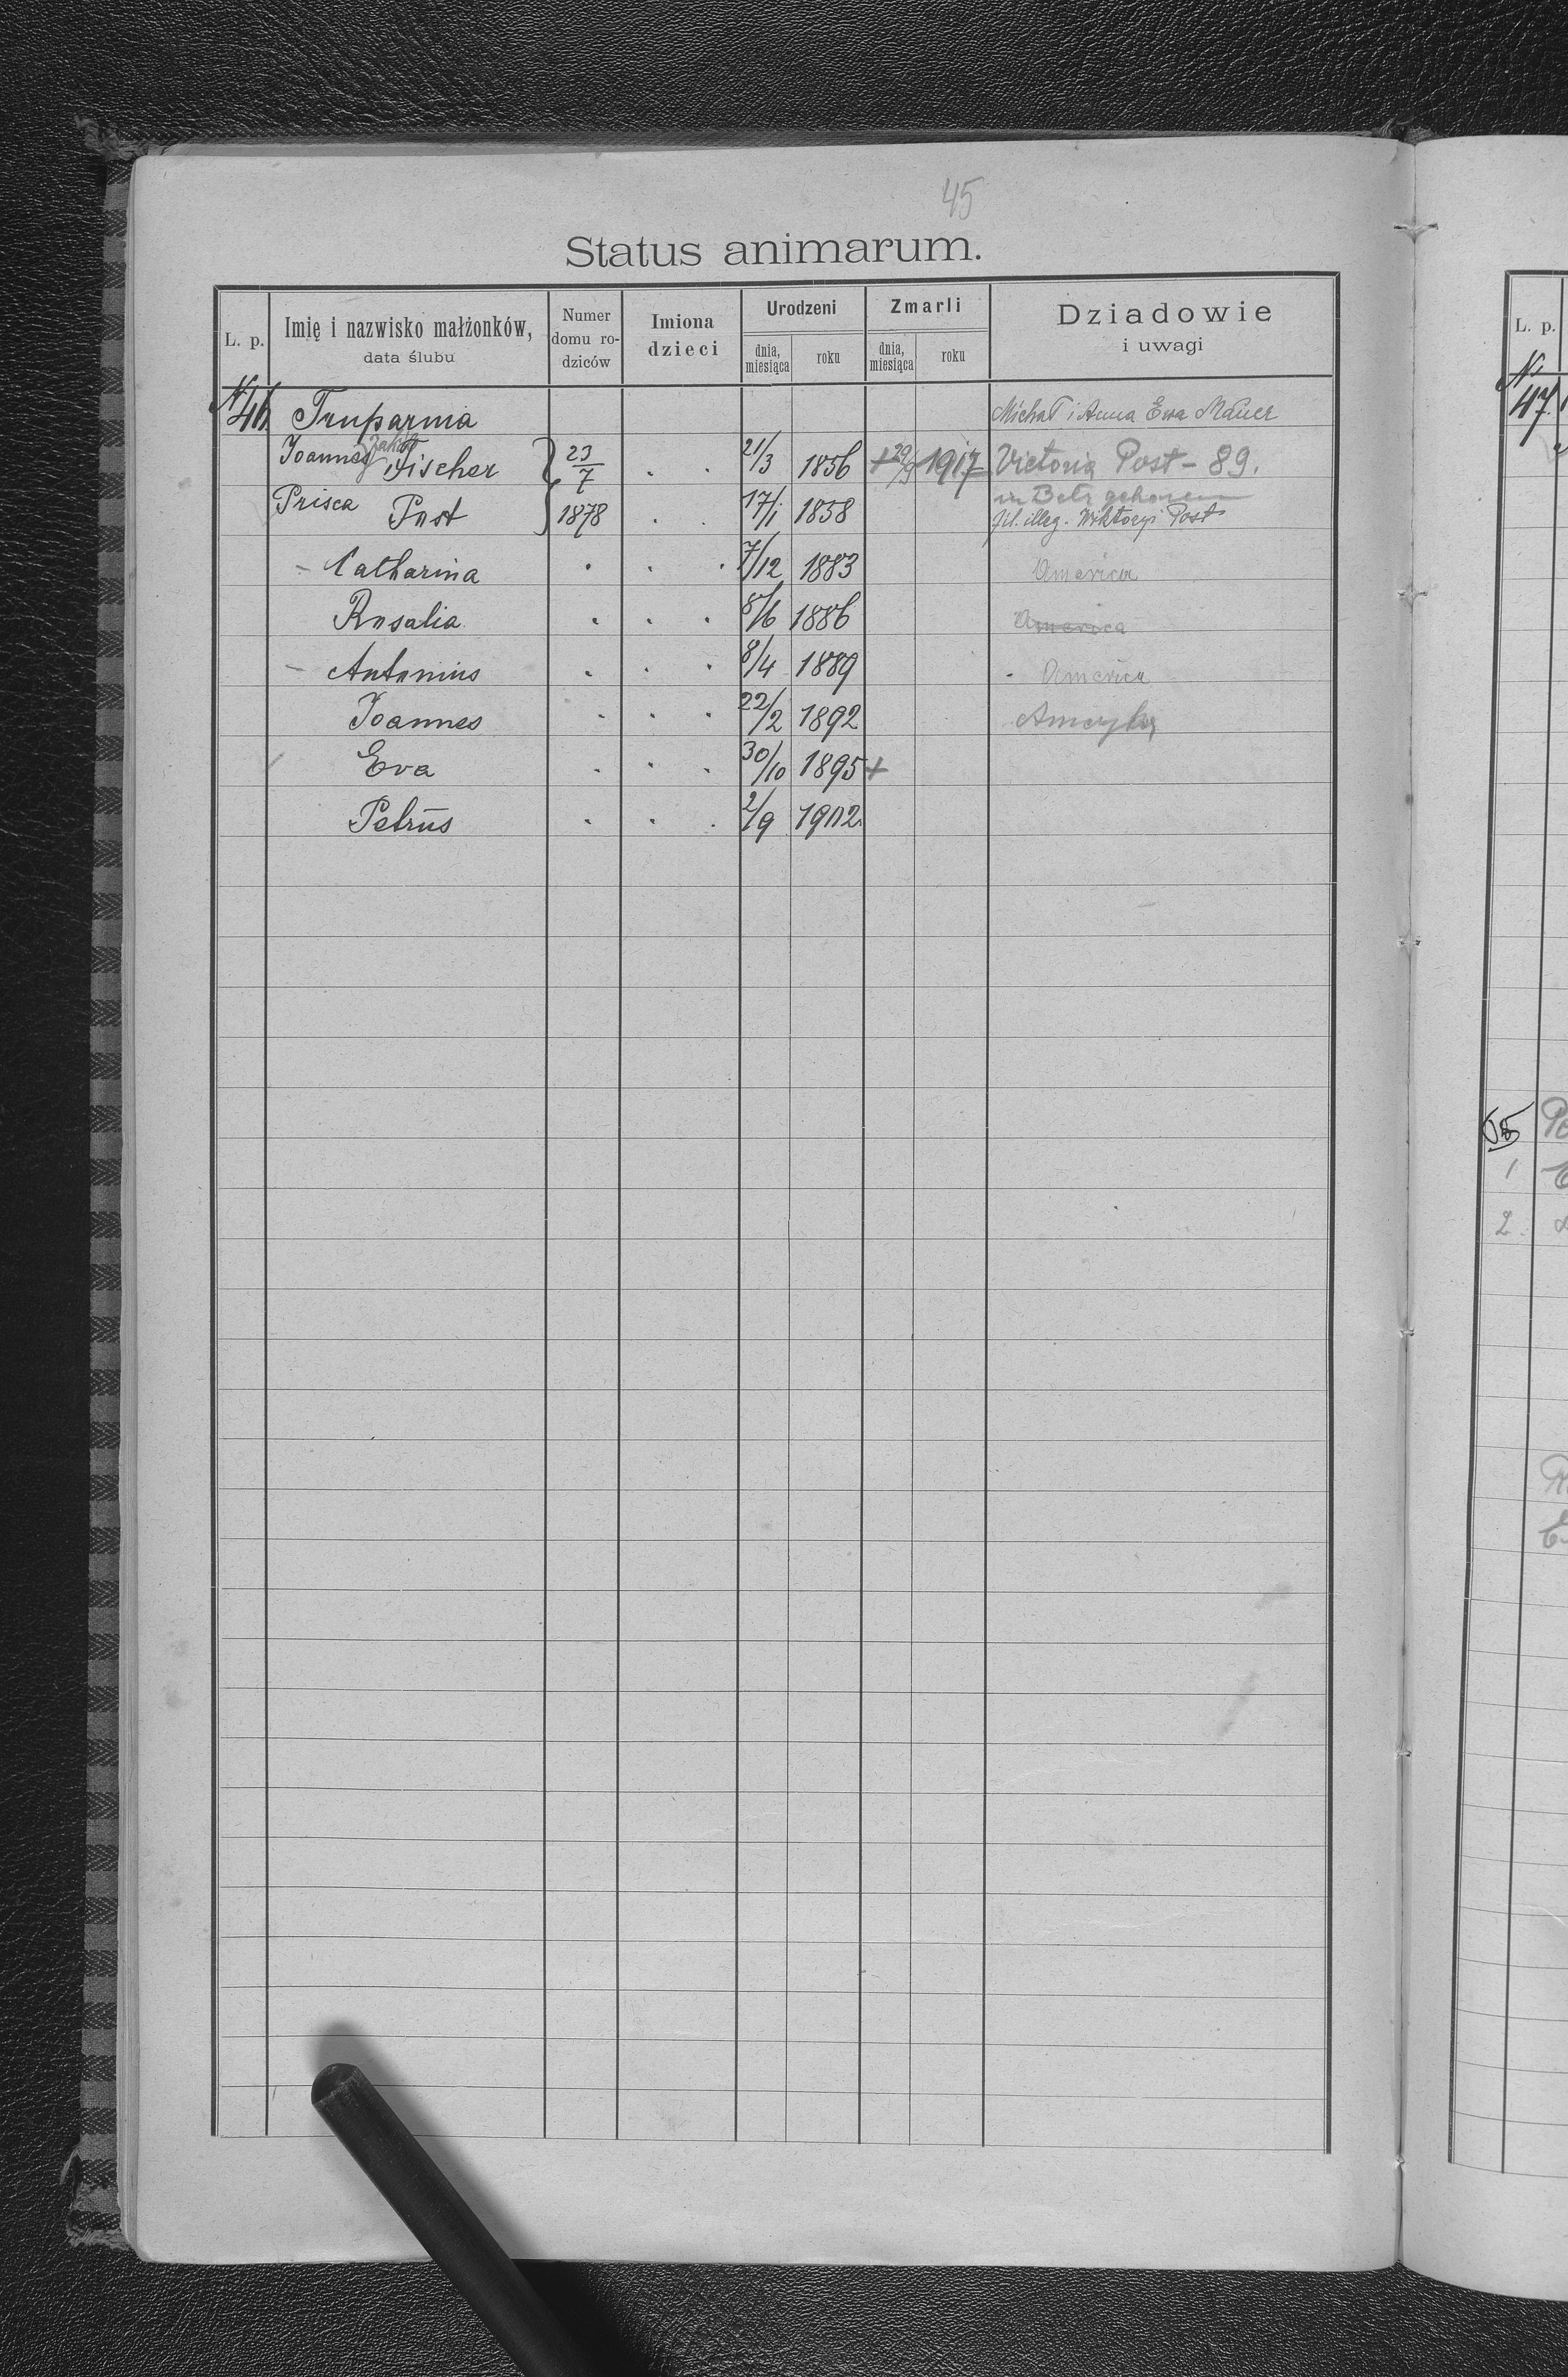 45
Status animarum.
L. p. Imię i nazwisko małżonków, data ślubu Numer domu ro-dziców Imiona dzieci Urodzeni dnia, miesiąca roku Zmarli dnia, miesiąca roku Dziadowie i uwagi
N 46 Michał i Anna Ewa Mauer
Joannes Jakób Fischer 23/7 21/3 1856 + 29/9 1917 Victoria Post - 89.
Prisca Post 1878 17/1 1858 fil. illeg. Wiktoryi Post
- Catharina 7/12 1883 America
Rosalia 8/6 1886 America
- Antonius 8/4 1889 - America
Joannes 22/2 1892 Ameryka
Eva 30/10 1895 +
Petrus 2/9 1902.
L. p.
N
47.
1
2.